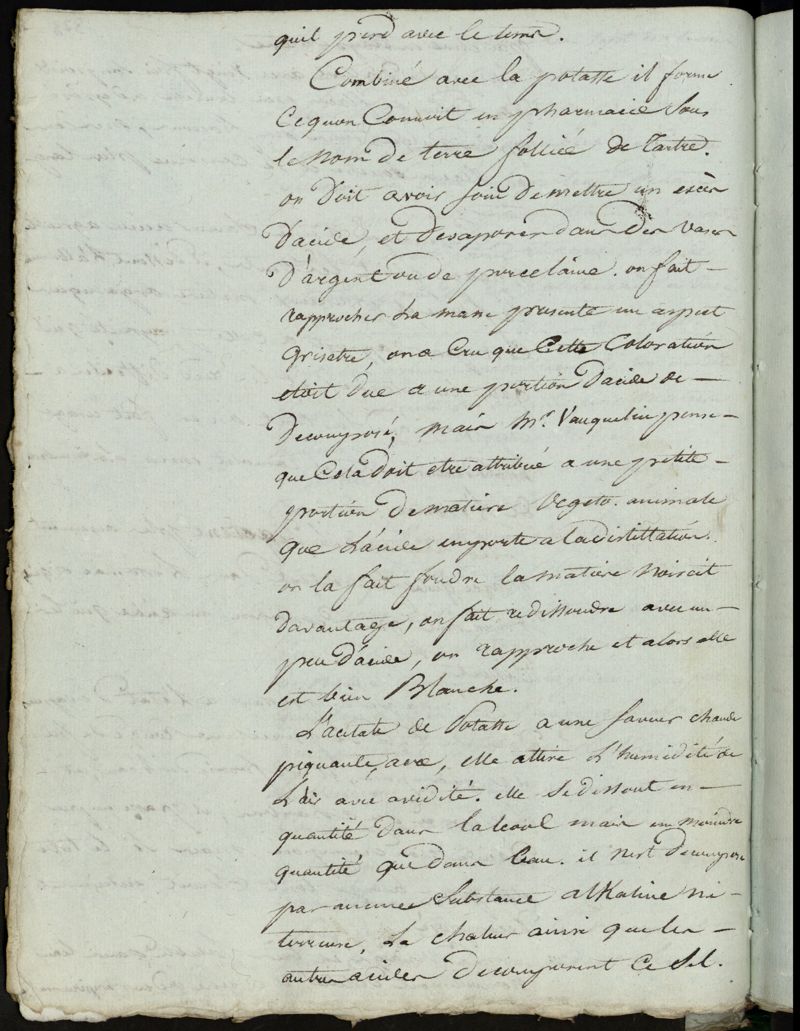 quil perd avec le tems.
Combiné avec la potasse il forme
cequon Connoit en pharmacie sous
le nom de terre folliée de Tartre.
on Doit avoir soin De mettre un excès
D'acide, et Desaporer dans Des vases
D'argent ou de porcelaine. on fait –
rapprocher La masse presente un aspect
Grisatre, on a Cru que Cette Coloration
etoit due a une portion D'acide de –
Decomposé, mais Mr. Vauquelin pense –
que Cela Doit etre attribué a une petite –
portion De matiere vegeto. animale
que L'acide emporte a la distillation.
on la fait fondre la matiere Noircit
Davantage, on fait redissoudre avec un –
peu D'acide, on rapproche et alors elle
est bien Blanche.
L'acetate de Potasse a une saveur chaude
piquante, elle attire L'humidité de
L'air avec avidité. elle se dissout en –
quantité dans lalcool mais en moindre
quantité que dans leau. il n'est Decomposé
par aucune Substance alkaline ni –
terreuse, La chaleur ainsi que les –
autres acides Decomposent ce Sel.